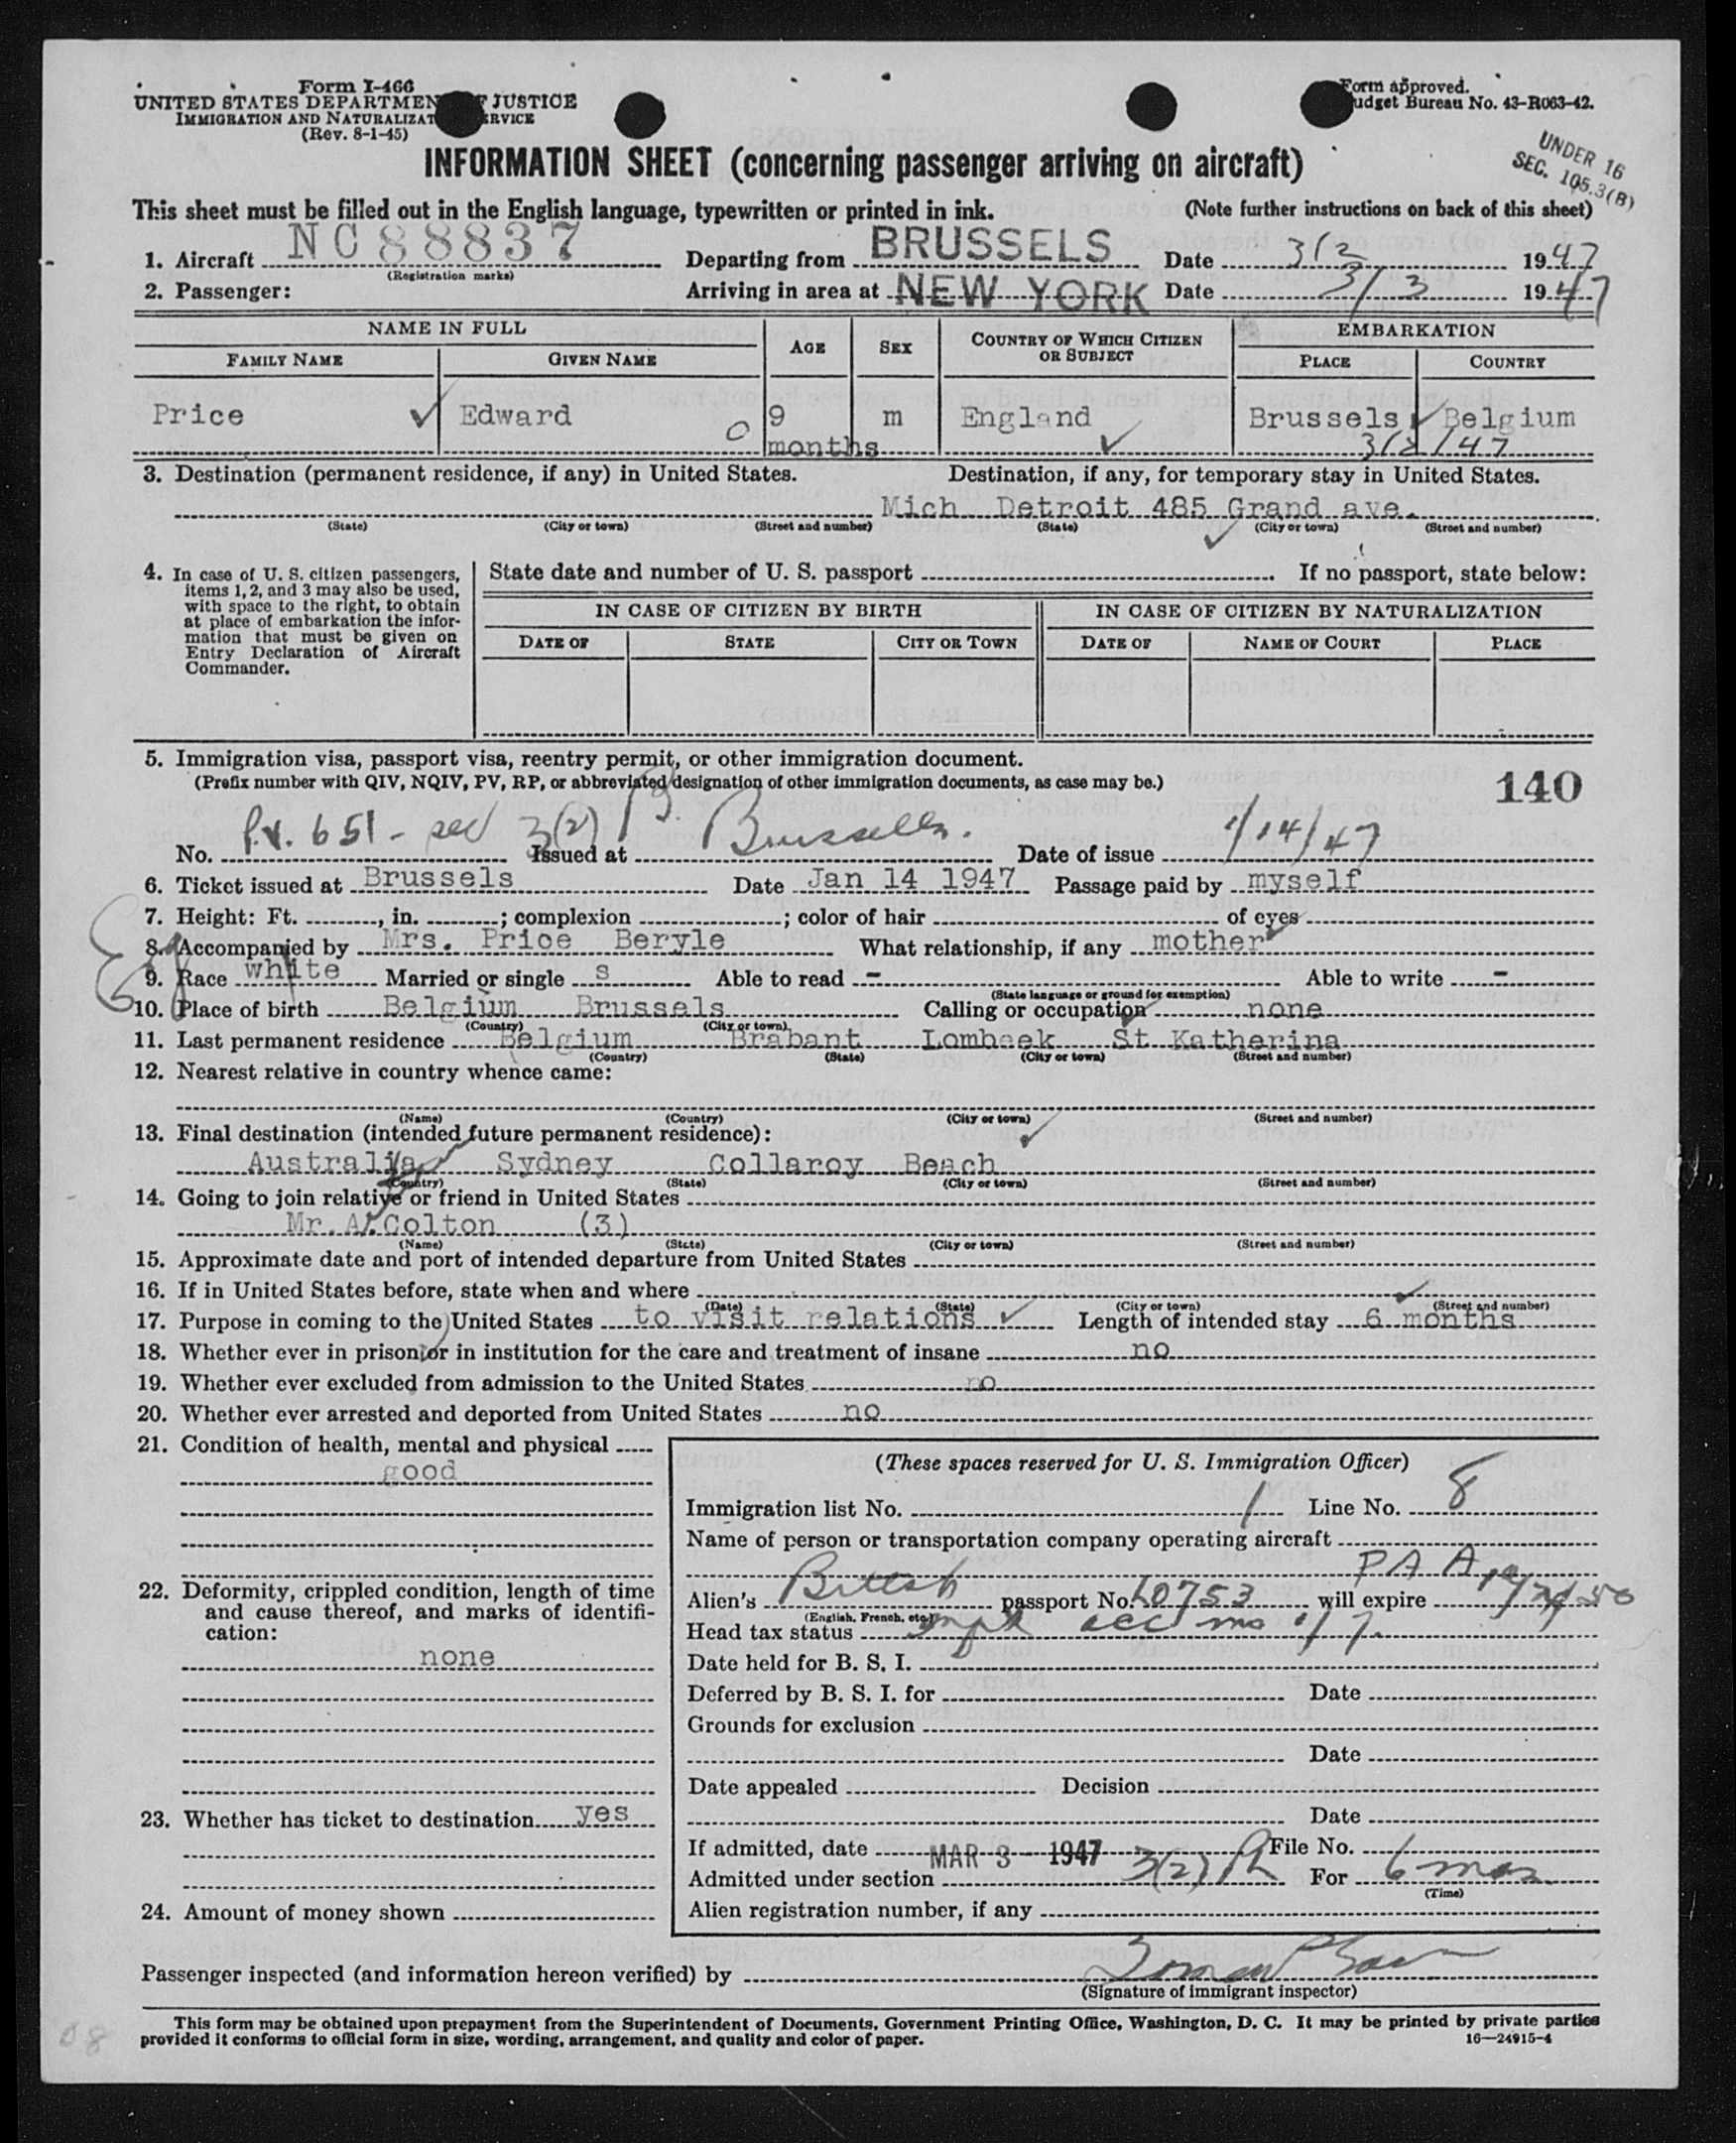 Form I-466
UNITED STATES DEPARTMEN JUSTICE
IMMIGRATION AND NATURALIZAT RVICE
(Rev. 8-1-45)
Form approved.
udget Bureau No. 43-R063-42.
UNDER 16
SEC. 105.3(B)
INFORMATION SHEET (concerning passenger arriving on aircraft)
This sheet must be filled out in the English language, typewritten or printed in ink. (Note further instructions on back of this sheet)
1. Aircraft NC88837 Departing from BRUSSELS Date 3/2 1947
(Registration marks)
2. Passenger: Arriving in area at NEW YORK Date 3/3 1947
NAME IN FULL AGE SEX COUNTRY OF WHICH CITIZEN OR SUBJECT EMBARKATION
FAMILY NAME GIVEN NAME PLACE COUNTRY
Price Edward 9 m England Brussels Belgium
0 months 3/2/47
3. Destination (permanent residence, if any) in United States. Destination, if any, for temporary stay in United States.
Mich Detroit 485 Grand ave.
(State) (City or town) (Street and number) (State) (City or town) (Street and number)
4. In case of U. S. citizen passengers, items 1, 2, and 3 may also be used, with space to the right, to obtain at place of embarkation the information that must be given on Entry Declaration of Aircraft Commander.
State date and number of U. S. passport . If no passport, state below:
IN CASE OF CITIZEN BY BIRTH IN CASE OF CITIZEN BY NATURALIZATION
DATE OF STATE CITY OR TOWN DATE OF NAME OF COURT PLACE
5. Immigration visa, passport visa, reentry permit, or other immigration document.
(Prefix number with QIV, NQIV, PV, RP, or abbreviated designation of other immigration documents, as case may be.) 140
No. P.V. 651 - sec 3(2) Issued at Brussels. Date of issue 1/14/47
6. Ticket issued at Brussels Date Jan 14 1947 Passage paid by myself
7. Height: Ft. , in. ; complexion ; color of hair of eyes
8. Accompanied by Mrs. Price Beryle What relationship, if any mother
9. Race white Married or single s Able to read - Able to write -
(State language or ground for exemption)
10. Place of birth Belgium Brussels Calling or occupation none
(Country) (City or town)
11. Last permanent residence Belgium Brabant Lombeek St Katherina
(Country) (State) (City or town) (Street and number)
12. Nearest relative in country whence came:
(Name) (Country) (City or town) (Street and number)
13. Final destination (intended future permanent residence):
Australia Sydney Collaroy Beach
(Country) (State) (City or town) (Street and number)
14. Going to join relative or friend in United States
Mr. A. Colton (3)
(Name) (State) (City or town) (Street and number)
15. Approximate date and port of intended departure from United States
16. If in United States before, state when and where
(Date) (State) (City or town) (Street and number)
17. Purpose in coming to the United States to visit relations Length of intended stay 6 months
18. Whether ever in prison or in institution for the care and treatment of insane no
19. Whether ever excluded from admission to the United States no
20. Whether ever arrested and deported from United States no
21. Condition of health, mental and physical
good
22. Deformity, crippled condition, length of time
and cause thereof, and marks of identifi-
cation:
none
23. Whether has ticket to destination yes
24. Amount of money shown
(These spaces reserved for U. S. Immigration Officer)
Immigration list No. 1 Line No. 8
Name of person or transportation company operating aircraft
PAA
Alien's British passport No. L0753 will expire
(English, French, etc.)
Head tax status
Date held for B. S. I.
Deferred by B. S. I. for Date
Grounds for exclusion
Date
Date appealed Decision
Date
If admitted, date MAR 3 - 1947 File No.
Admitted under section 3(2) For 6 mos
(Time)
Alien registration number, if any
Passenger inspected (and information hereon verified) by
(Signature of immigrant inspector)
This form may be obtained upon prepayment from the Superintendent of Documents, Government Printing Office, Washington, D. C. It may be printed by private parties
provided it conforms to official form in size, wording, arrangement, and quality and color of paper. 16—24915-4